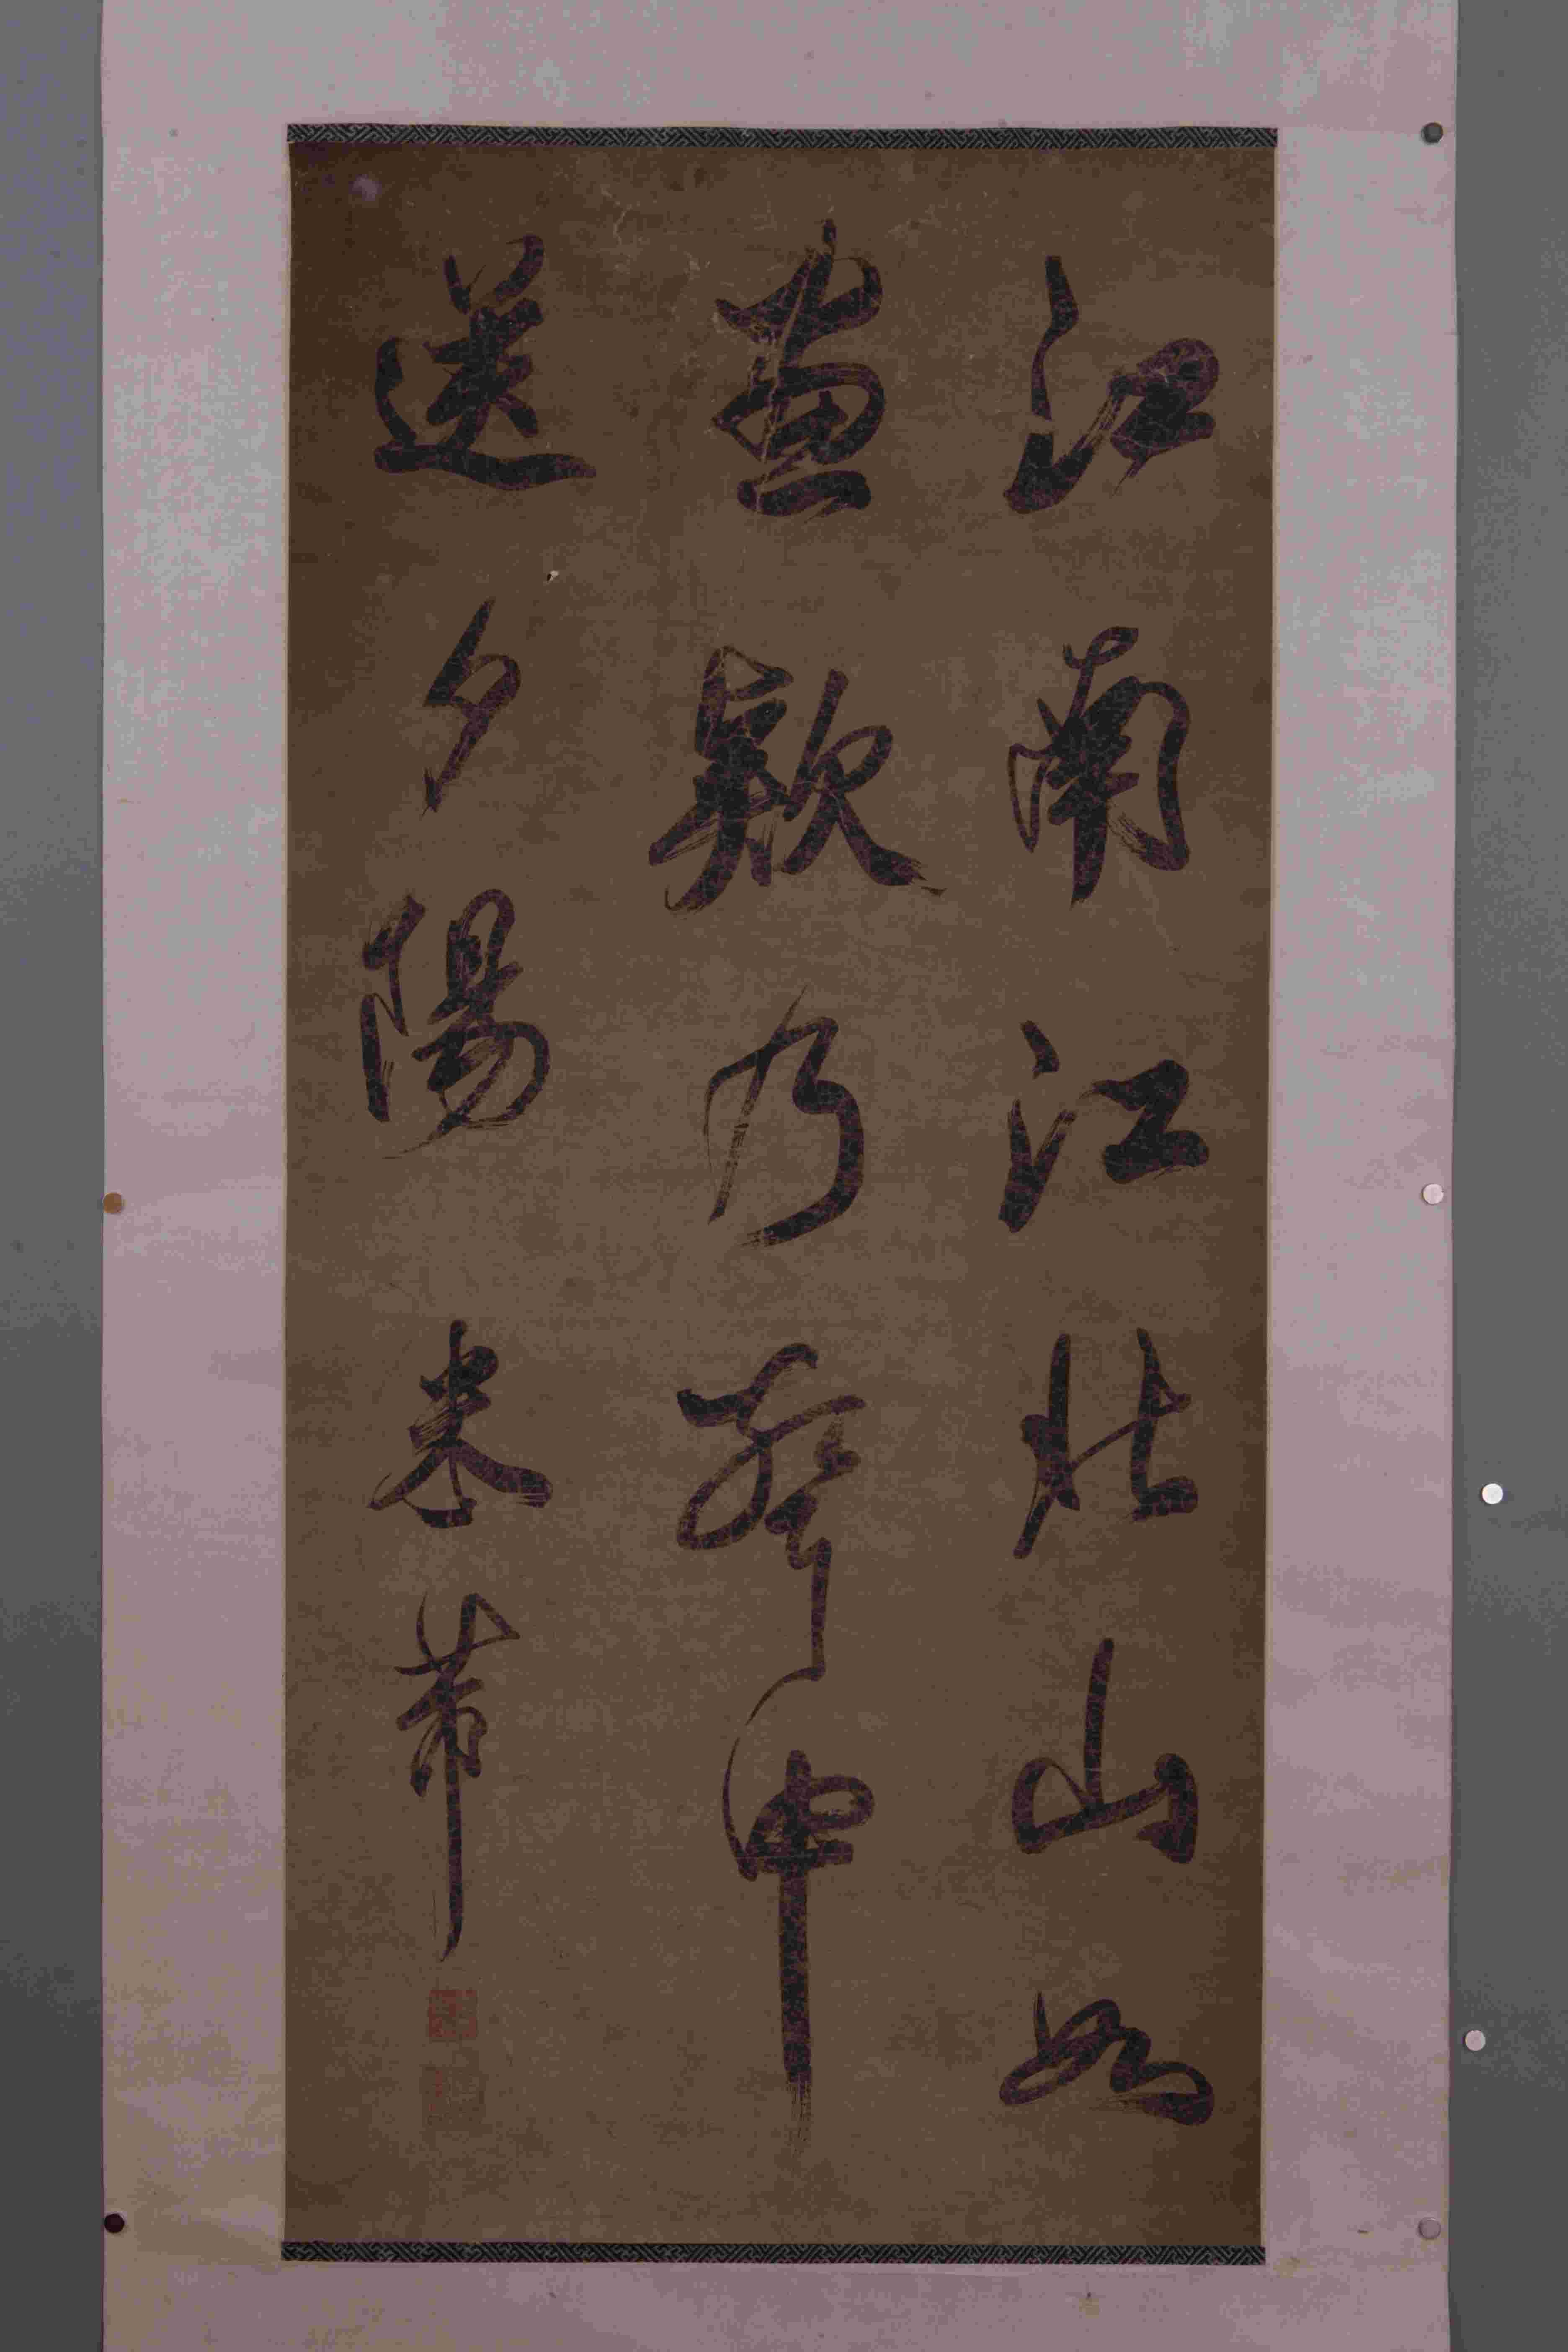 江南江北山如
畫欸乃聲中
送夕陽 米芾